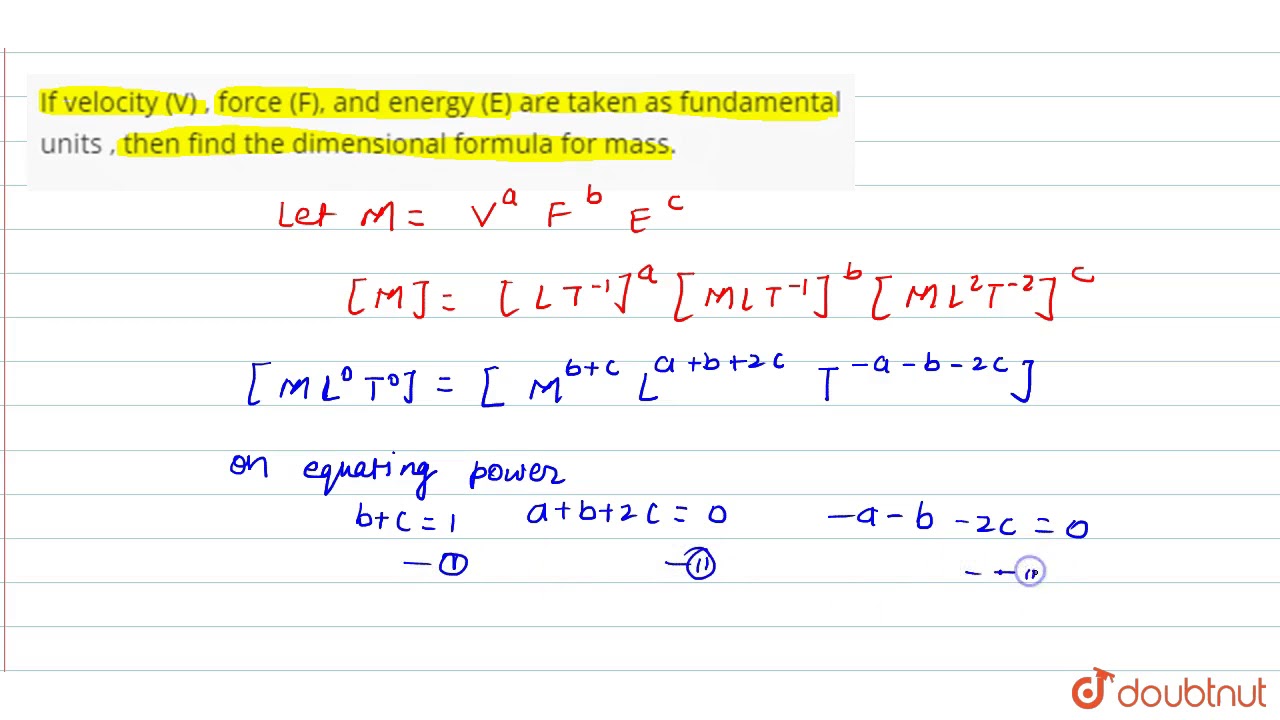 If velocity (V) , force (F), and energy (E) are taken as fundamental
units , then find the dimensional formula for mass.
Let M = V^a F^b E^c
[M] = [L T^-1]^a [M L T^-1]^b [M L^2 T^-2]^c
[M L^0 T^0] = [M^b+c L^a+b+2c T^-a-b-2c]
on equating power
b+c=1 a+b+2c=0 -a-b-2c=0
— (I) — (II) — —
doubtnut